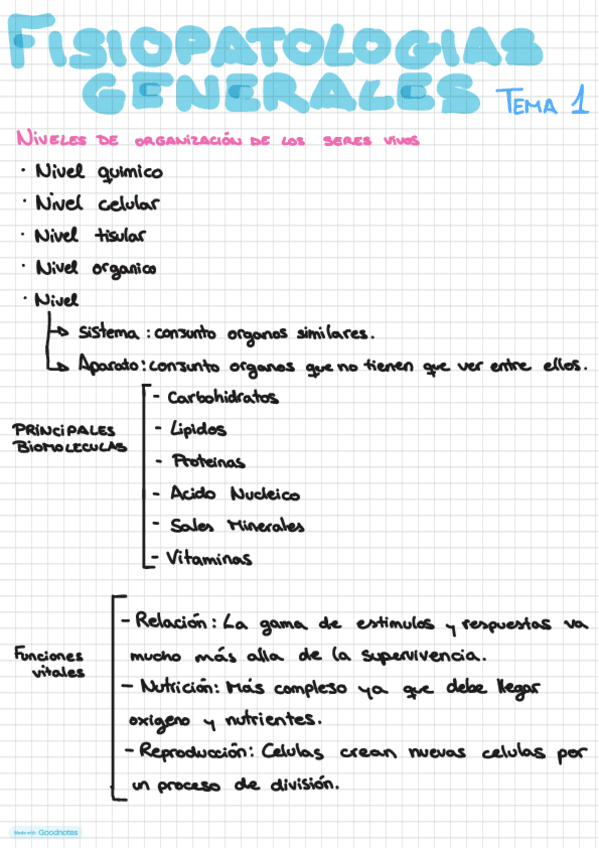 FISIOPATOLOGIAS
GENERALES TEMA 1
NIVELES DE ORGANIZACIÓN DE LOS SERES VIVOS
· Nivel quimico
· Nivel celular
· Nivel tisular
· Nivel organico
· Nivel
Sistema : conjunto organos similares.
Aparato : conjunto organos que no tienen que ver entre ellos.
PRINCIPALES
BIOMOLECULAS
- Carbohidratos
- Lipidos
- Proteinas
- Acido Nucleico
- Sales Minerales
- Vitaminas
Funciones
vitales
- Relación : La gama de estimulos y respuestas va
mucho más alla de la supervivencia.
- Nutrición : Más complejo ya que debe llegar
oxigeno y nutrientes.
- Reproducción : Celulas crean nuevas celulas por
un proceso de división.
Made with Goodnotes